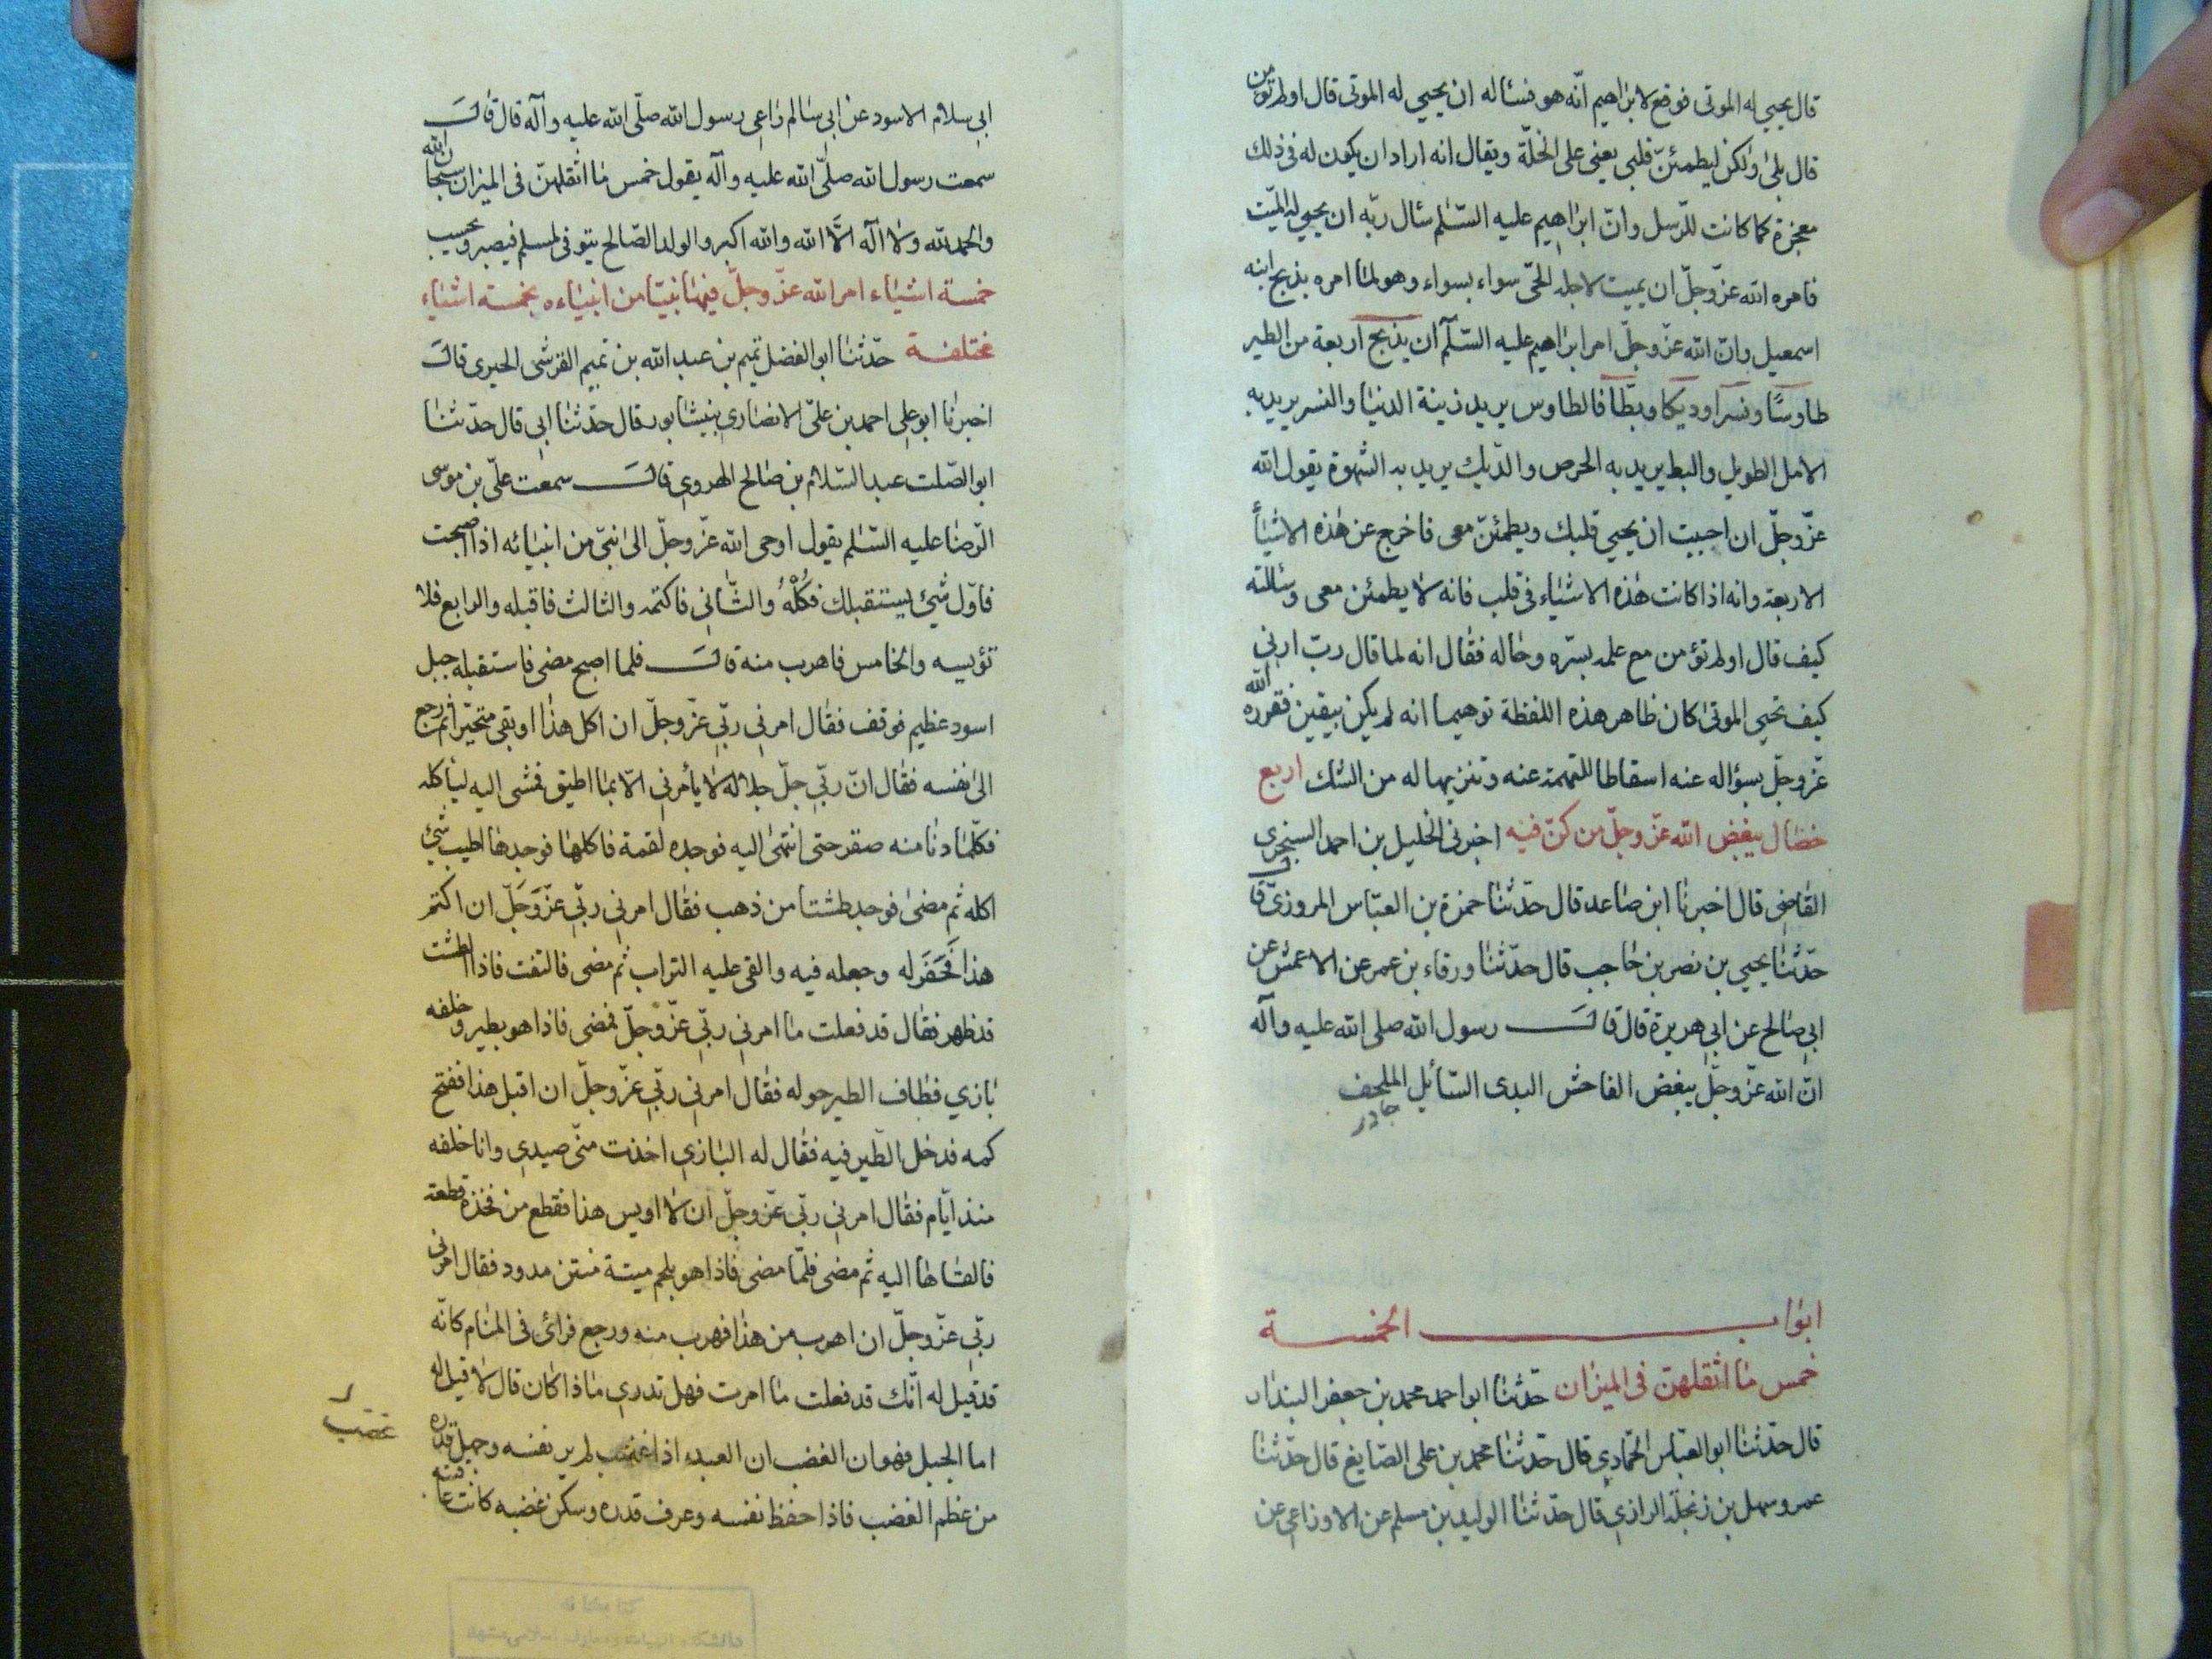 قال يحيي له الموتى فوقع لابراهيم انّه هو فسأله ان يحيي له الموتى قال اولم تؤمن
قال بلى ولكن ليطمئنّ قلبي يعني على الخلّة ويقال انه اراد ان يكون له في ذلك
معجزة كما كانت للرّسل وانّ ابراهيم عليه السّلم سئال ربّه ان يحيي له الميّت
فامره الله عزّ وجلّ ان يميت لاجله الحّى سواء بسواء وهو لمّا امره بذبح ابنه
اسمعيل وانّ الله عزّ وجلّ امر ابراهيم عليه السّلم ان يذبح اربعة من الطير
طاوسًا ونسرا وديكا وبطّا فالطاوس يريد زينة الدنيا والنسر يريد به
الامل الطويل والبط يريد به الحرص والدّيك يريد به الشهوة يقول الله
عزّ وجلّ ان احببت ان يحيي قلبك ويطمئنّ معى فاخرج عن هذه الاشياء
الاربعة وانه اذا كانت هذه الاشياء في قلب فانه لا يطمئن معى وسالته
كيف قال اولم تؤمن مع علمه بسّره وحاله فقال انه لما قال ربّ ارني
كيف تحيي الموتى كان ظاهر هذه اللفظة توهيما انه لم يكن بيقين فقرره الله
عزّ وجلّ بسؤاله عنه اسقاطا للتهمة عنه وتنزيها له من الشك اربع
خصال يبغض الله عزّ وجلّ من كنّ فيه اخبرني الخليل بن احمد السنجرى
القاضي قال اخبرنا ابن صاعد قال حدّثنا حمزة بن العبّاس المروزيّ قال
حدّثنا يحيى بن نصر بن حاجب قال حدّثنا ورقاء بن عمر عن الاعمش عن
ابي صالح عن ابي هريرة قال قال رسول الله صلى الله عليه وآله
انّ الله عزّ وجلّ يبغض الفاحش البدى السّائل الملحف
ابواب الخمسة
خمس ما اثقلهنّ في الميزان حدّثنا ابو احمد محمد بن جعفر البندار
قال حدّثنا ابو العبّاس الحّمادي قال حدّثنا محمد بن على الصّايغ قال حدّثنا
عمرو سهل بن زنجلة الرازي قال حدّثنا الوليد بن مسلم عن الاوزاعي عن
ابي سلام الاسود عن ابي سالم راعي رسول الله صلّى الله عليه وآله قال قال
سمعت رسول الله صلّى الله عليه وآله يقول خمس ما اثقلهنّ في الميزان سبحان الله
والحمد لله ولا اله الّا الله والله اكبر والولد الصّالح يتوفى لمسلم فيصبر ويحسب
خمسة اشياء امر الله عزّ وجلّ فيها نبيّا من انبياءه بخمسة اشياء
مختلفة حدّثنا ابو الفضل تميم بن عبد الله بن تميم القرشى الحيرى قال
اخبرنا ابو علي احمد بن علىّ الانصاري بنيشابور قال حدّثنا ابي قال حدّثنا
ابو الصّلت عبد السّلام بن صالح الهروي قال سمعت علىّ بن موسى
الرّضا عليه السّلم يقول اوحى الله عزّ وجلّ الى نبيّ من انبيائه اذا اصبحت
فاوّل شئ يستقبلك فكُلْهُ والثّاني فاكتمه والثالث فاقبله والرابع فلا
تؤيسه والخامس فاهرب منه قال فلما اصبح مضى فاستقبله جبل
اسود عظيم فوقف فقال امرني ربّي عزّ وجلّ ان اكل هذا او بقى متحيّرا ثم رجع
الى نفسه فقال انّ ربّي جلّ جلاله لا يأمرني الّا بما اطيق فمشى اليه ليأكله
فكلّما دنا منه صغر حتى انتهى اليه فوجده لقمة فاكلها فوجدها اطيب شئ
اكله ثم مضى فوجد طشتا من ذهب فقال امرني ربّي عزّ وَجَلّ ان اكتم
هذا فَحَفَر له وجعله فيه والقى عليه التراب ثم مضى فالتفت فاذا الطشت
قد ظهر فقال قد فعلت ما امرني ربّي عزّ وجلّ فمضى فاذا هو بطير وخلفه
بازي فطاف الطير حوله فقال امرني ربّي عزّ وجلّ ان اقبل هذا ففتح
كمه فدخل الطّير فيه فقال له البازي اخذت منّى صيدي وانا خلفه
منذ ايّام فقال امرني ربّي عزّ وجلّ ان لا اويس هذا فقطع من فخذه قطعة
فالقاها اليه ثم مضى فلمّا مضى فاذا هو بلحم ميتة منتن مدود فقال امرني
ربّي عزّ وجلّ ان اهرب من هذا فهرب منه ورجع فرائ في المنام كانّه
قد قيل له انّك قد فعلت ما امرت فهل تدري ماذا كان قال لا قيل له
اما الجبل فهو ان الغضب ان العبد اذا غضب لم ير نفسه وجهل قدره
من عظم الغضب فاذا حفظ نفسه وعرف قدره وسكن غضبه كانت عاقبته
غضب